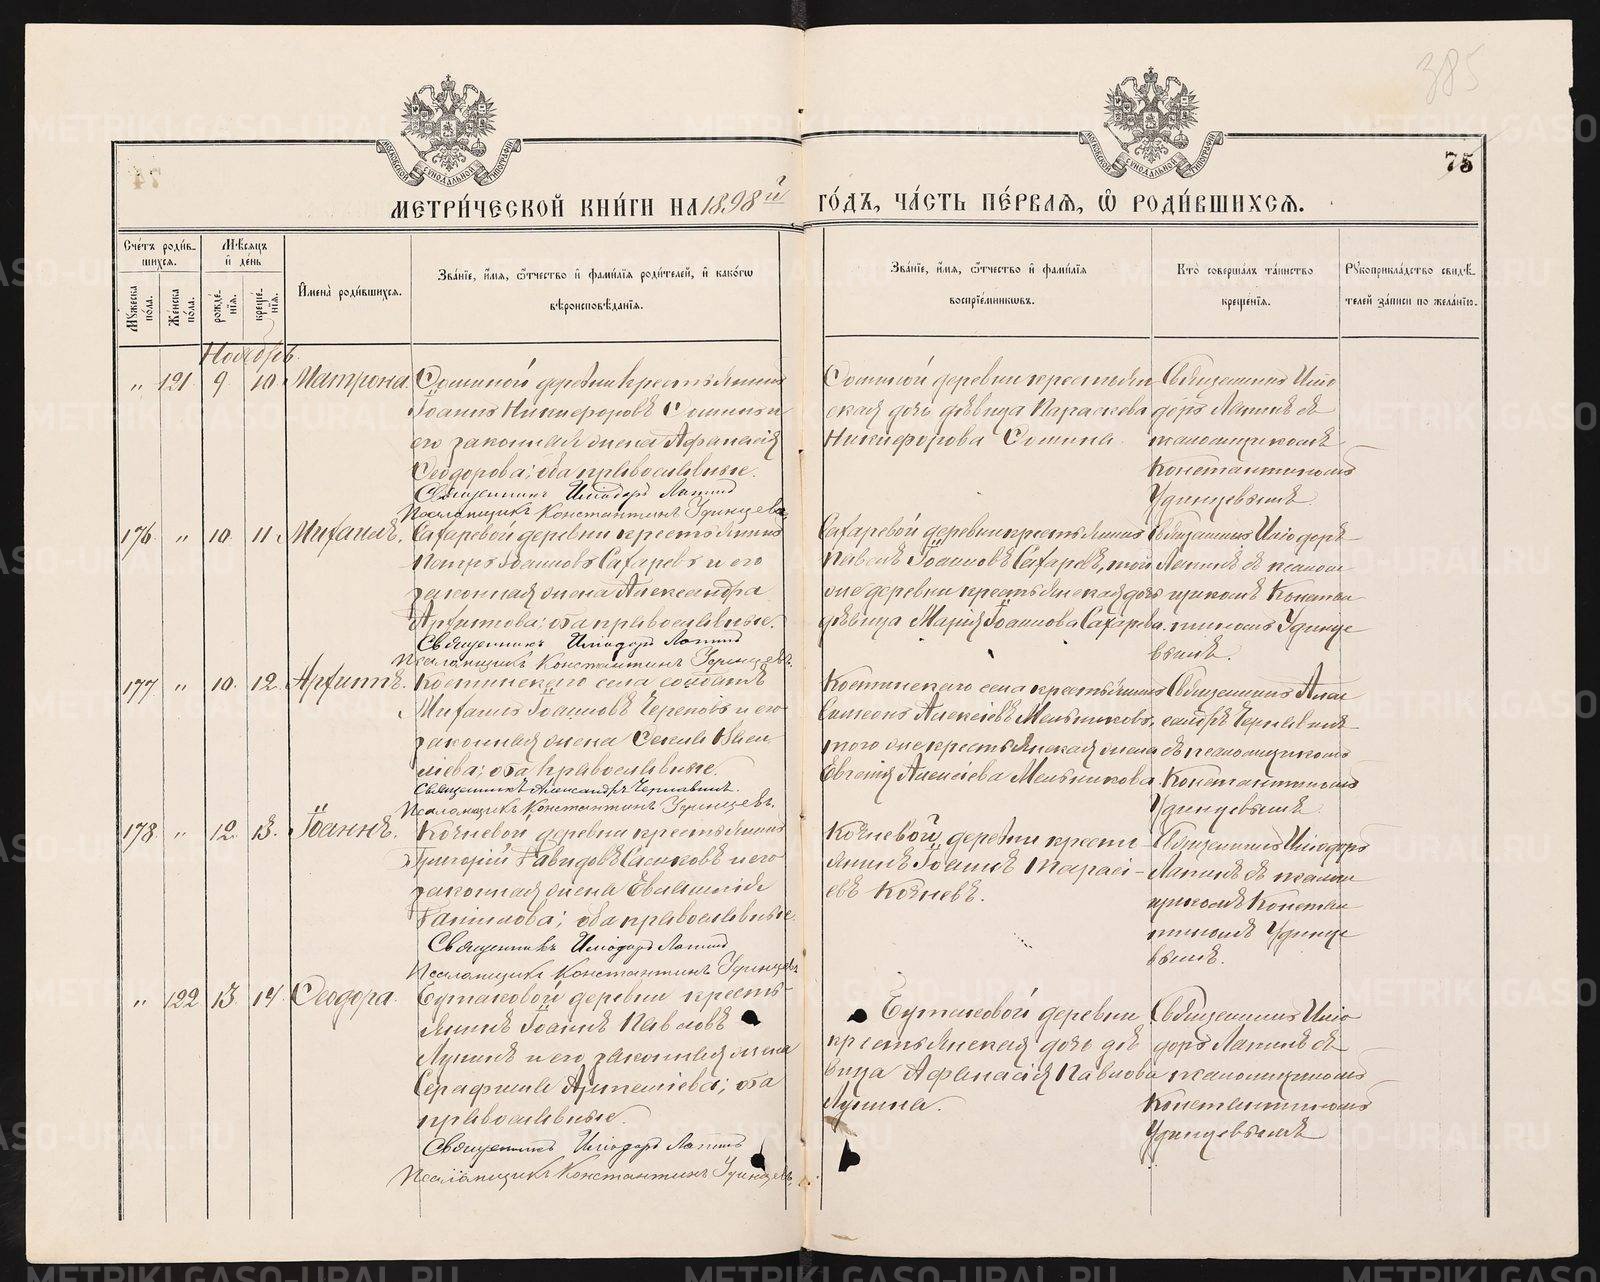 385
75
МЕТРИ́ЧЕСКОЙ КНИ́ГИ НА 1898й ГО́ДЪ, ЧА́СТЬ ПЕ́РВАѦ, Ѡ҆ РОДИ́ВШИХСѦ.
Сче́тъ роди́в-
шихсѧ.
Мѣ́сѧцъ
и҆ де́нь
Мꙋ́жеска по́ла.
Же́нска по́ла.
рожде́-
нїѧ.
креще́-
нїѧ.
И҆мена̀ роди́вшихсѧ.
Зва́нїе, и҆́мѧ, ѻ҆́тчество и҆ фами́лїѧ роди́телей, и҆ како́гѡ
вѣроисповѣ́данїѧ.
Зва́нїе, и҆́мѧ, ѻ҆́тчество и҆ фами́лїѧ
воспрїе́мникѡвъ.
Кто̀ соверша́лъ та́инство
креще́нїѧ.
Рꙋкоприкла́дство свидѣ́-
телей за́писи по жела́нїю.
Ноябрь.
„ 121 9 10 Матрона.
Сошиной деревни крестьянинъ
Іоаннъ Никифоровъ Сошинъ и
его законная жена Афанасія
Ѳеодорова; оба православные.
Священникъ Иліодоръ Лапинъ
Псаломщикъ Константинъ Удинцевъ.
Сошиной деревни крестьян-
ская дочь дѣвица Параскева
Никифорова Сошина.
Священникъ Иліо
доръ Лапинъ съ
псаломщикомъ
Константиномъ
Удинцевымъ
176 „ 10. 11. Михаилъ.
Сахаровой деревни крестьянинъ
Петръ Іоанновъ Сахаровъ и его
законная жена Александра
Архипова; оба православные.
Священникъ Иліодоръ Лапинъ
Псаломщикъ Константинъ Удинцевъ.
Сахаровой деревни крестьянинъ
Павелъ Іоанновъ Сахаровъ, той
же деревни крестьянская дочь
дѣвица Марія Іоаннова Сахарова.
Священникъ Иліодоръ
Лапинъ съ псалом
щикомъ Констан
тиномъ Удинце
вымъ.
177 „ 10. 12. Архиппъ.
Костинскаго села солдатъ
Михаилъ Іоанновъ Череповъ и его
законная жена Васи
лиева; оба православные.
Священникъ Александръ Чернавинъ.
Псаломщикъ Константинъ Удинцевъ.
Костинскаго села крестьянинъ
Симеонъ Алексіевъ Мельниковъ,
того же крестьянская жена
Евгенія Алексіева Мельникова
Священникъ Алек
сандръ Чернавинъ
съ псаломщикомъ
Константиномъ
Удинцевымъ
178. „ 12. 13. Іоаннъ.
Кочневой деревни крестьянинъ
Григорій Давидовъ и его
законная жена Евлампія
Даніилова; оба православные.
Священникъ Иліодоръ Лапинъ
Псаломщикъ Константинъ Удинцевъ
Кочневой деревни кресть
янинъ Іоаннъ Тарасі-
евъ Кочневъ.
Священникъ Иліодоръ
Лапинъ съ псалом
щикомъ Констан
тиномъ Удинце
вымъ.
„ 122 13. 14. Ѳеодора.
Бутаковой деревни кресть-
янинъ Іоаннъ Павловъ
Лупинъ и его законная жена
Серафима Артеміева; оба
православные.
Священникъ Иліодоръ Лапинъ
Псаломщикъ Константинъ Удинцевъ.
Бутаковой деревни
крестьянская дочь дѣ
вица Афанасія Павлова
Лупина.
Священникъ Иліо
доръ Лапинъ съ
псаломщикомъ
Константиномъ
Удинцевымъ
METRIKI.GASO-URAL.RU